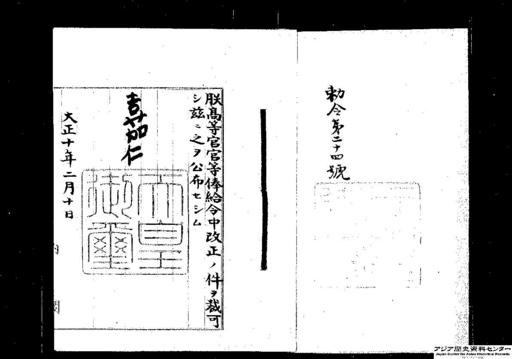 勅令第二十四號
朕高等官官等俸給令中改正ノ件ヲ裁可
シ茲ニ之ヲ公布セシム
嘉仁
天皇
御璽
大正十年二月十日
内閣
アジア歴史資料センター
Japan Center for Asian Historical Records